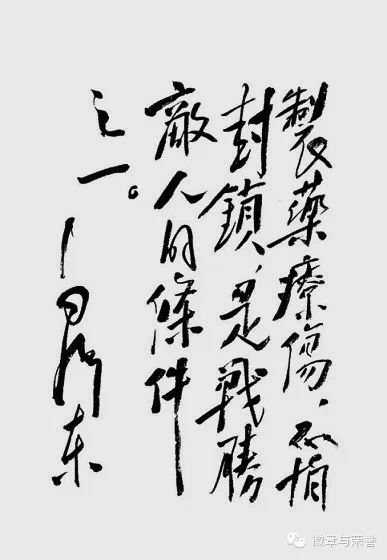 製藥療傷、不怕
封鎖,是戰勝
敵人的條件
之一。
徽章与荣誉